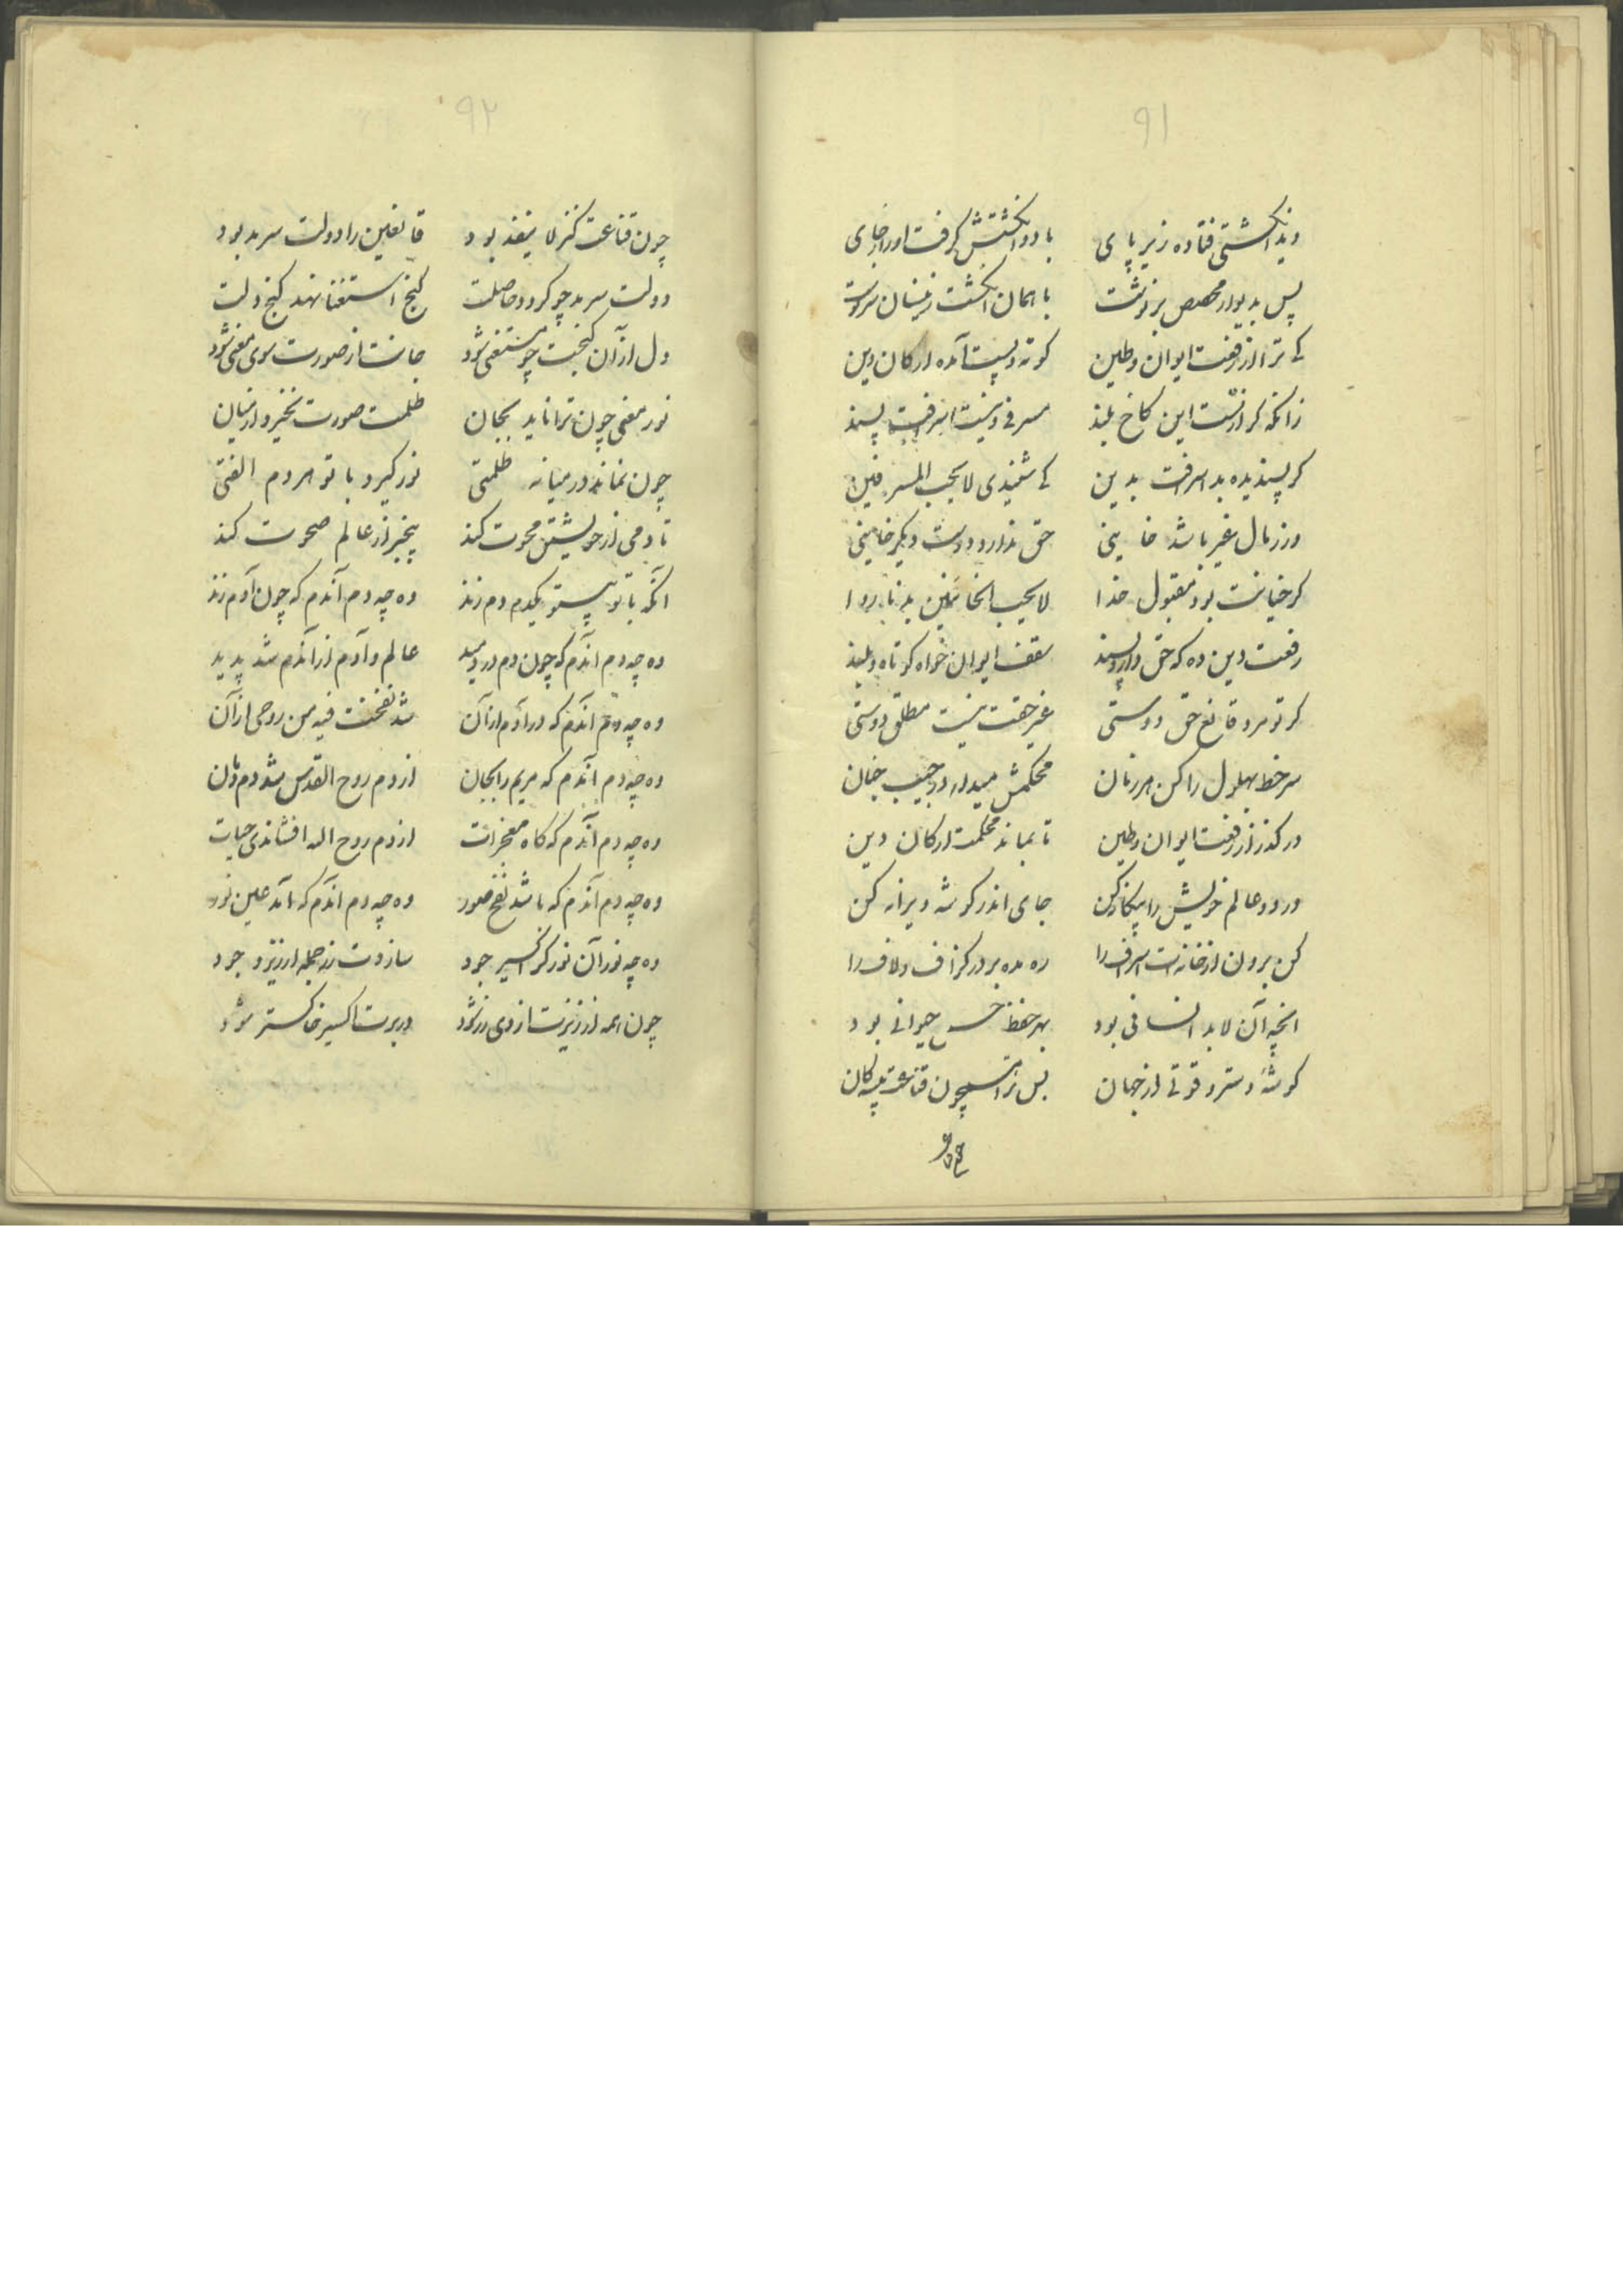 ۹۱
دید انکشتی فتاده زیر پای بادو انکشتش کرفت او را ز جای
پس بدیوار مجصص بر نوشت با همان انکشت زینسان سرنوشت
کای ترا از رفعت ایوان و طین کوته و پست آمده ارکان دین
زانکه کر از تست این کاخ بلند مسرفی و نیست اسرافت پسند
کر پسندیده بد اسرافت بدین کی شنیدی لا یحب المسرفین
ور ز مال غیر باشد خاینی حق ندارد دوست دیکر خاینی
کر خیانت بود مقبول خدا لا یحب الخائنین بد ناروا
رفعت دین ده که حق دارد پسند سقف ایوان خواه کوتاه و بلند
کر تو مرد قانع حق دوستی غیر حقت نیست مطلق دوستی
سر خط بهلول را کن هر زمان محکمش میدار در جیب جنان
در کذر از رفعت ایوان و طین تا بماند محکمت ارکان دین
در دو عالم خویش را بیکانه کن جای اندر کوشه ویرانه کن
کن برون از خانه ات اسراف را ره مده بر در کزاف و لاف را
انچه آن لابد انسانی بود بهر حفظ حس حیوانی بود
کوشهٔ و ستر و قوتی از جهان بس ترا چون قناعت پیشه کان
چون
۹۲
چون قناعت کنز لا ینفد بود قانعین را دولت سرمد بود
دولت سرمد چو کردد حاصلت کنج استغنا نهد کنج دلت
دل از آن کنجت چو مستغنی شود جانت از صورت سوی معنی شود
نور معنی چون ترا تابد بجان ظلمت صورت نخیزد از میان
چون نماند در میانه ظلمتی نور کیرد با تو هر دم الفتی
تا دمی از خویشتن محوت کند بیخبر از عالم صحوت کند
آنکه با تو بیتو یکدم دم زند وه چه دم آندم که چون آدم زند
وه چه دم اندم که چون دم در دمید عالم و آدم از آندم شد پدید
وه چه دم اندم که در آدم از آن شد نفخت فیه من روحی از آن
وه چه دم آندم که مریم را بجان از دم روح القدس شد دم زنان
وه چه دم آندم که کاه معجزات از دم روح اله افشاندی حیات
وه چه دم آندم که باشد نفخ صور وه چه دم اندم که آمد عین نور
وه چه نور آن نور کز اکسیر جود سازدت زر جمله ارزیز وجود
چون همه ارزیزت از وی زر شود در برت اکسیر خاکستر شود